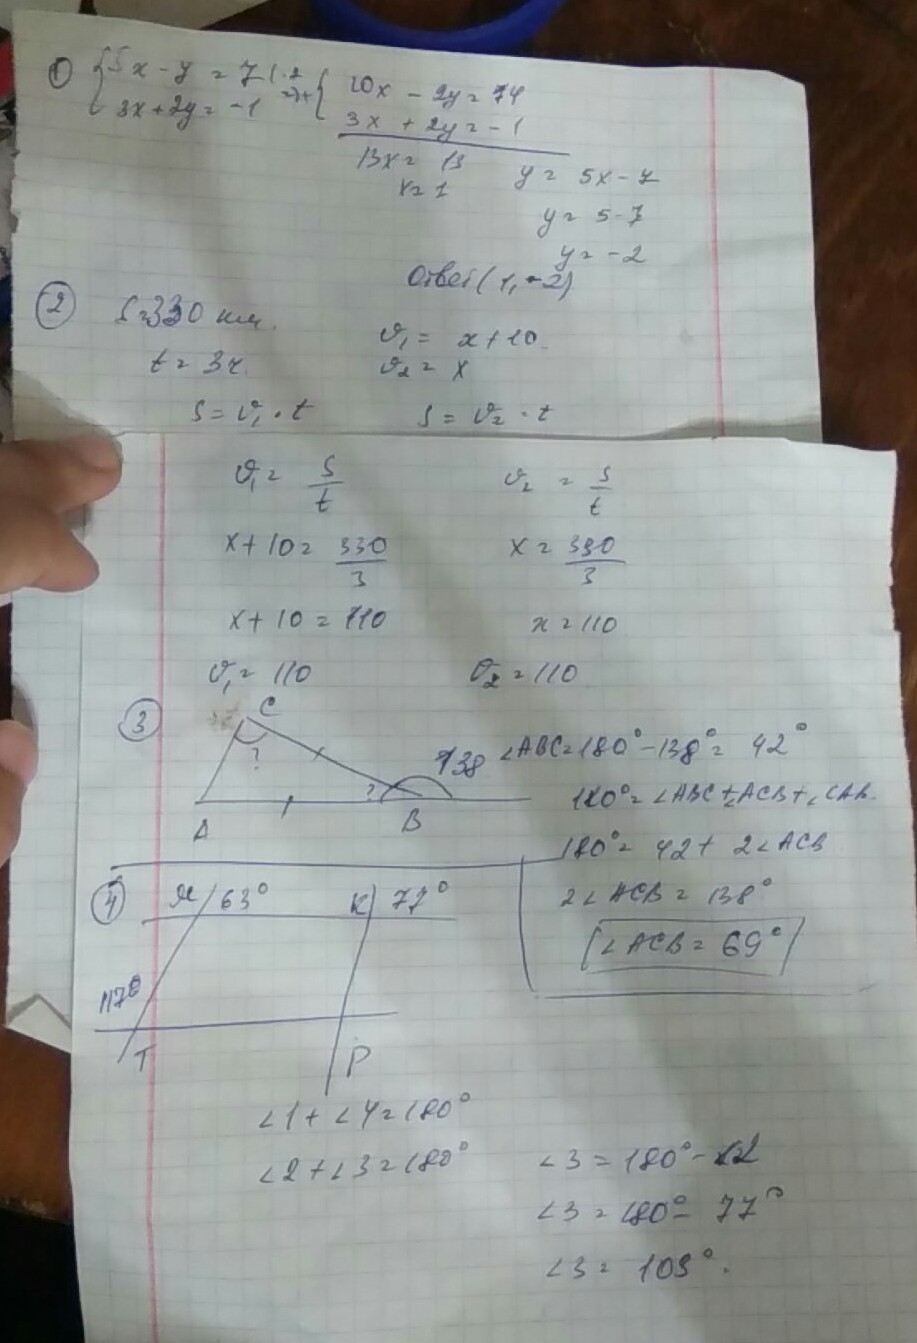 ① { 5x - y = 7 | ·2
3x + 2y = -1 => + { 10x - 2y = 14
3x + 2y = -1
13x = 13
x = 1
y = 5x - 7
y = 5 - 7
y = -2
Ответ (1, -2)
② S = 330 км.
t = 3ч.
υ₁ = x + 10
υ₂ = x
S = υ₁ · t
S = υ₂ · t
υ₁ = S/t
υ₂ = S/t
x + 10 = 330/3
x = 330/3
x + 10 = 110
x = 110
υ₁ = 110
υ₂ = 110
③ C
?
?
138
A
B
∠ABC = 180° - 138° = 42°
180° = ∠ABC + ∠ACB + ∠CAB
180° = 42 + 2∠ACB
2∠ACB = 138°
∠ACB = 69°
④ M 63° K 77°
117°
T
P
∠1 + ∠4 = 180°
∠2 + ∠3 = 180°
∠3 = 180° - ∠2
∠3 = 180° - 77°
∠3 = 103°.